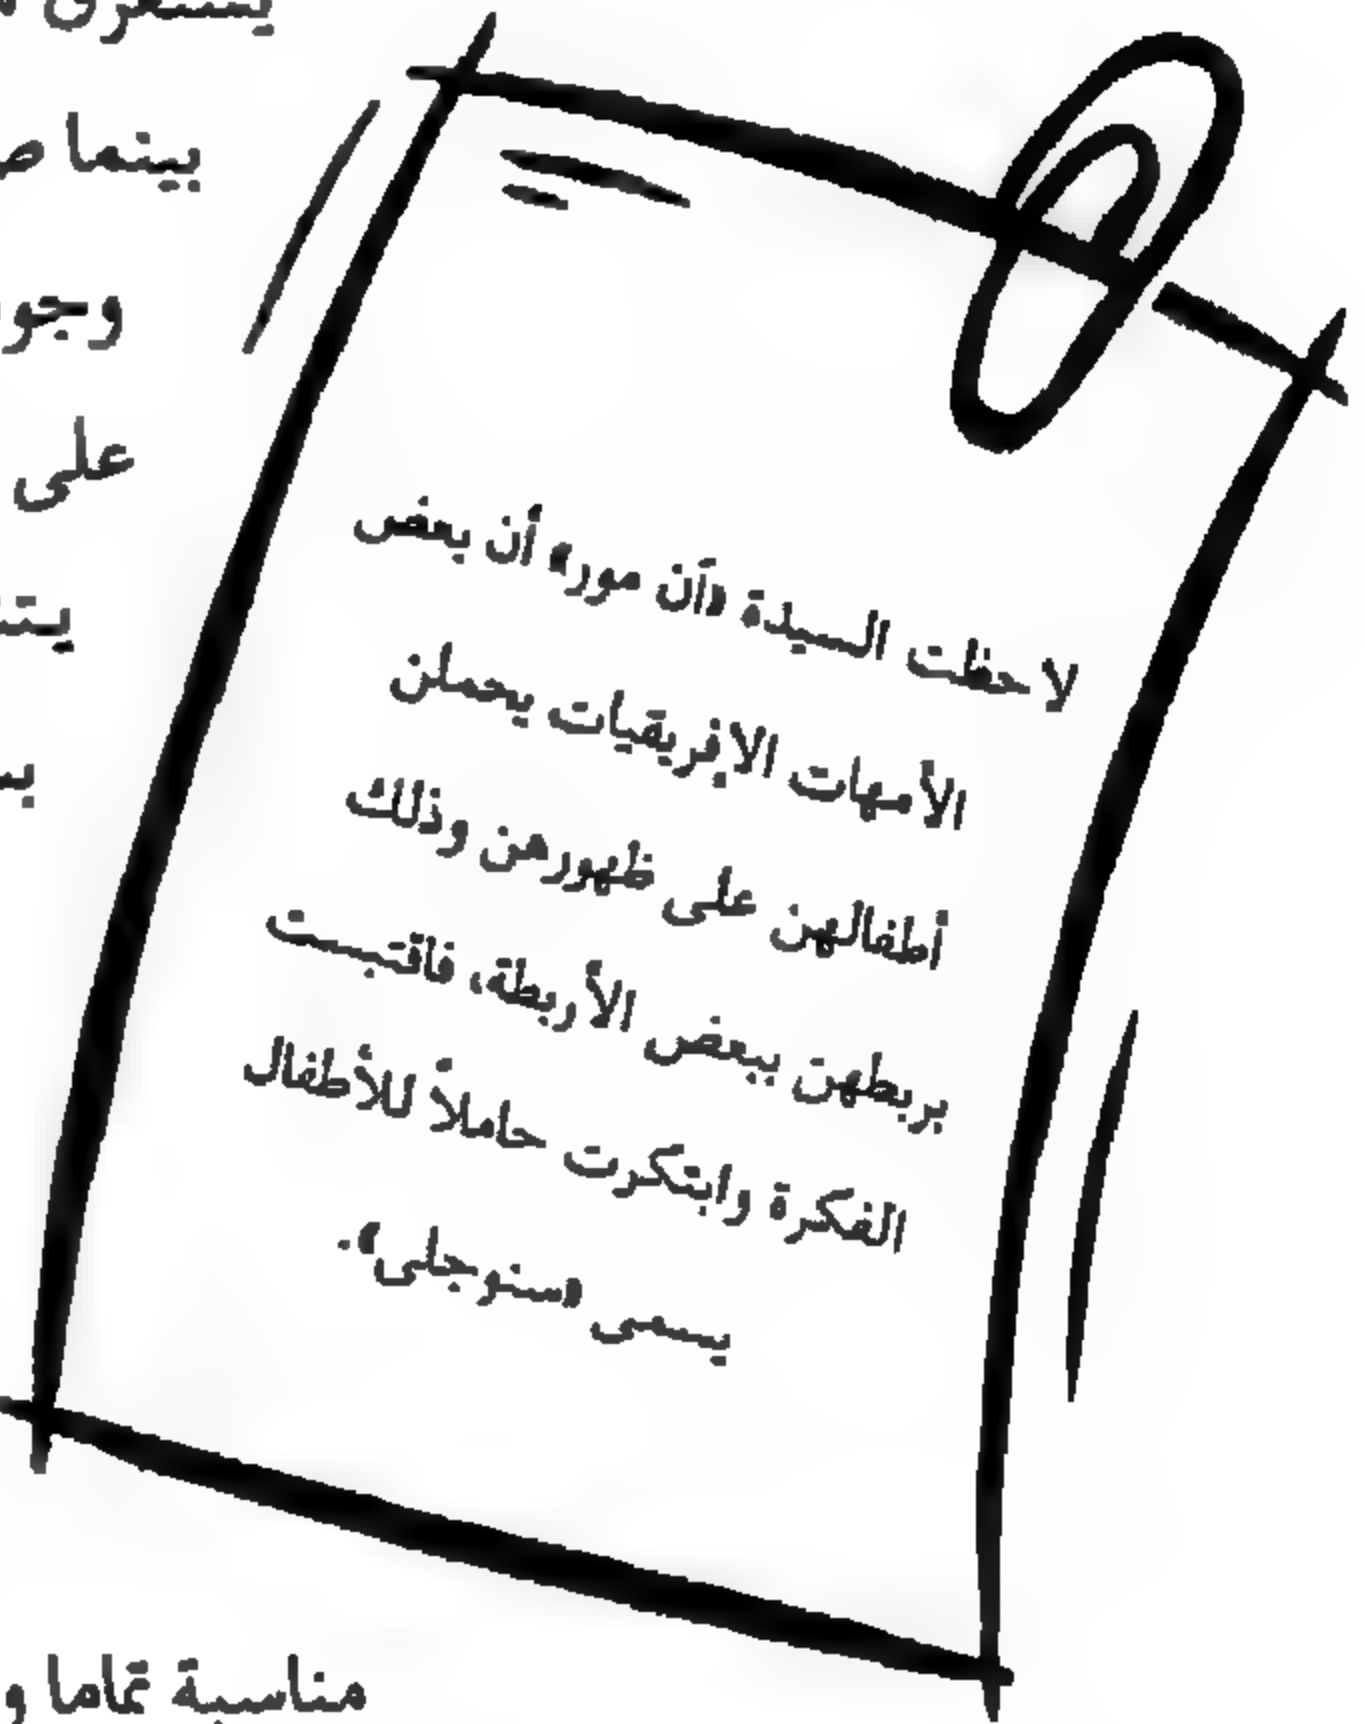 بينما
على
لاحظت السيدة «آن مور» أن بعض
الأمهات الإفريقيات يحملن
أطفالهن على ظهورهن وذلك
بربطهن ببعض الأربطة، فاقتبست
الفكرة وابتكرت حاملاً للأطفال
يسمى «سنوجلى».
مناسبة تماما و